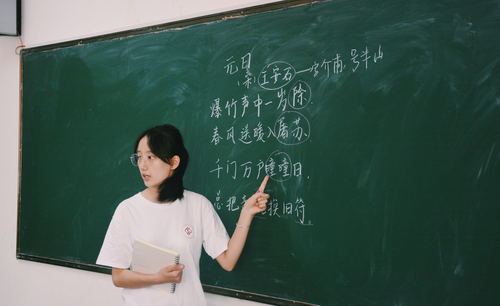 元日
(宋)王安石—字介甫,号半山
爆竹声中一岁除.
春风送暖入屠苏.
千门万户曈曈日.
总把 换旧符。